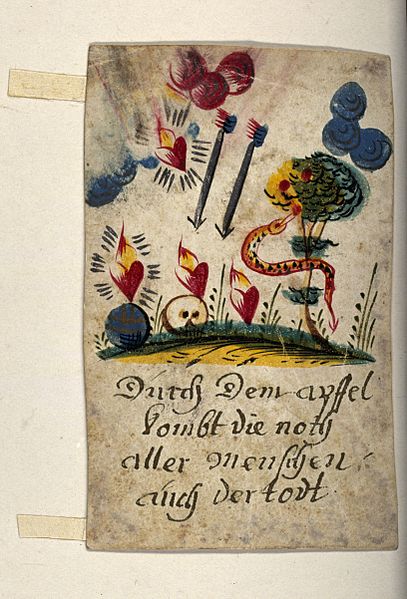 Durch Dem apffel
kombt die noth
aller menschen
auch der todt